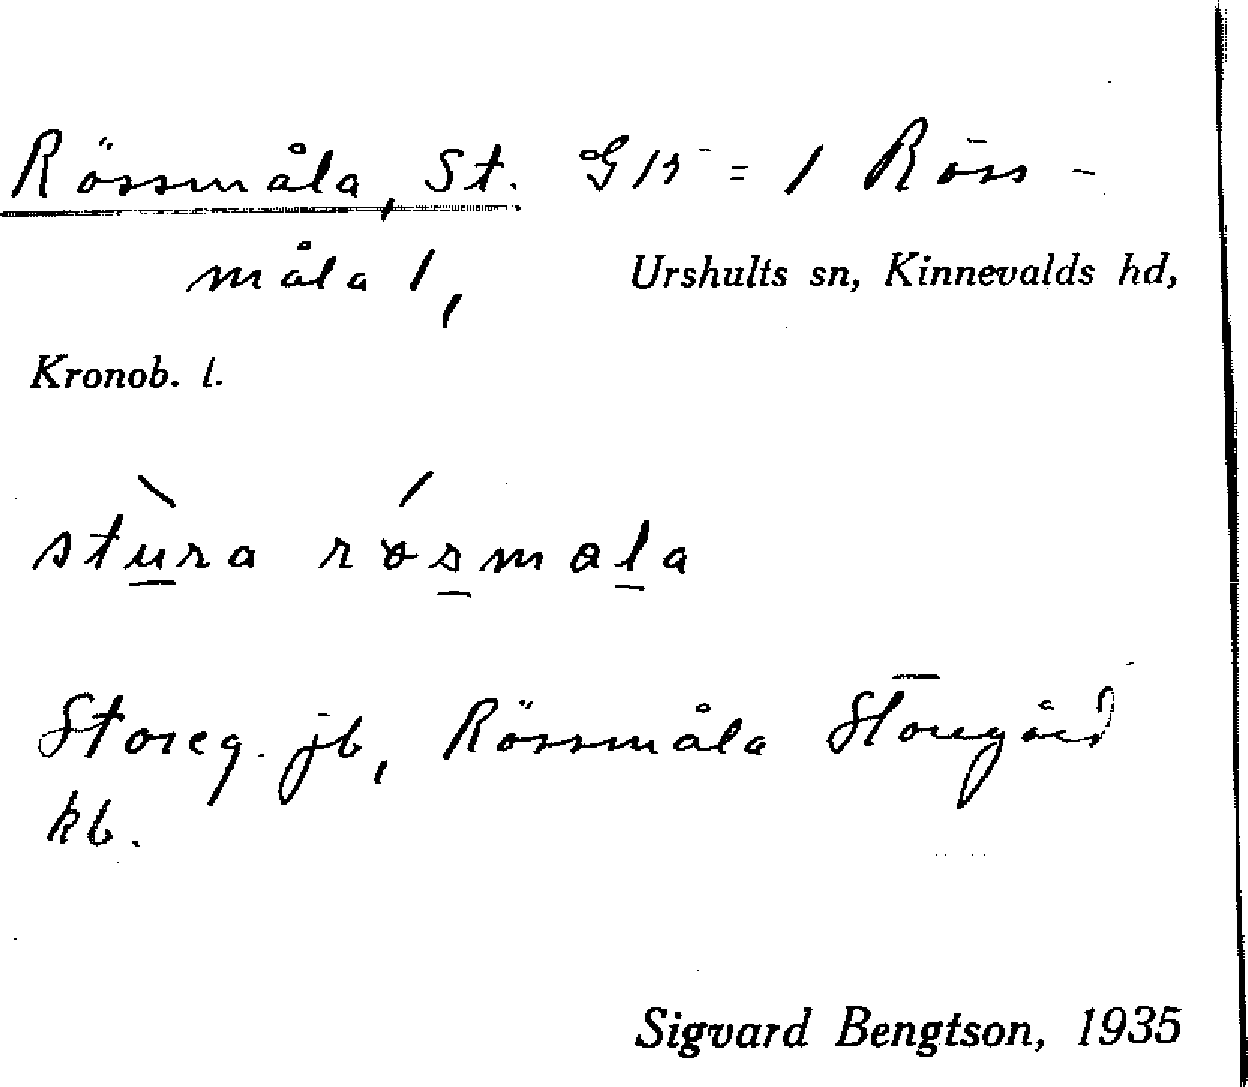 Rössmåla, St. G 15 = 1 Röss-
måla 1, Urshults sn, Kinnevalds hd,
Kronob. l.
stùra rǿsmala
Storeg. jb, Rössmåla Storegård
kb.
Sigvard Bengtson, 1935